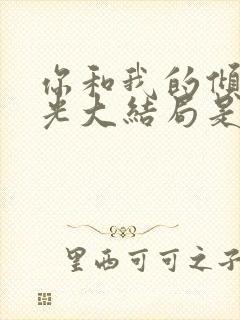 你和我的倾
光大结局是
里西可可之子